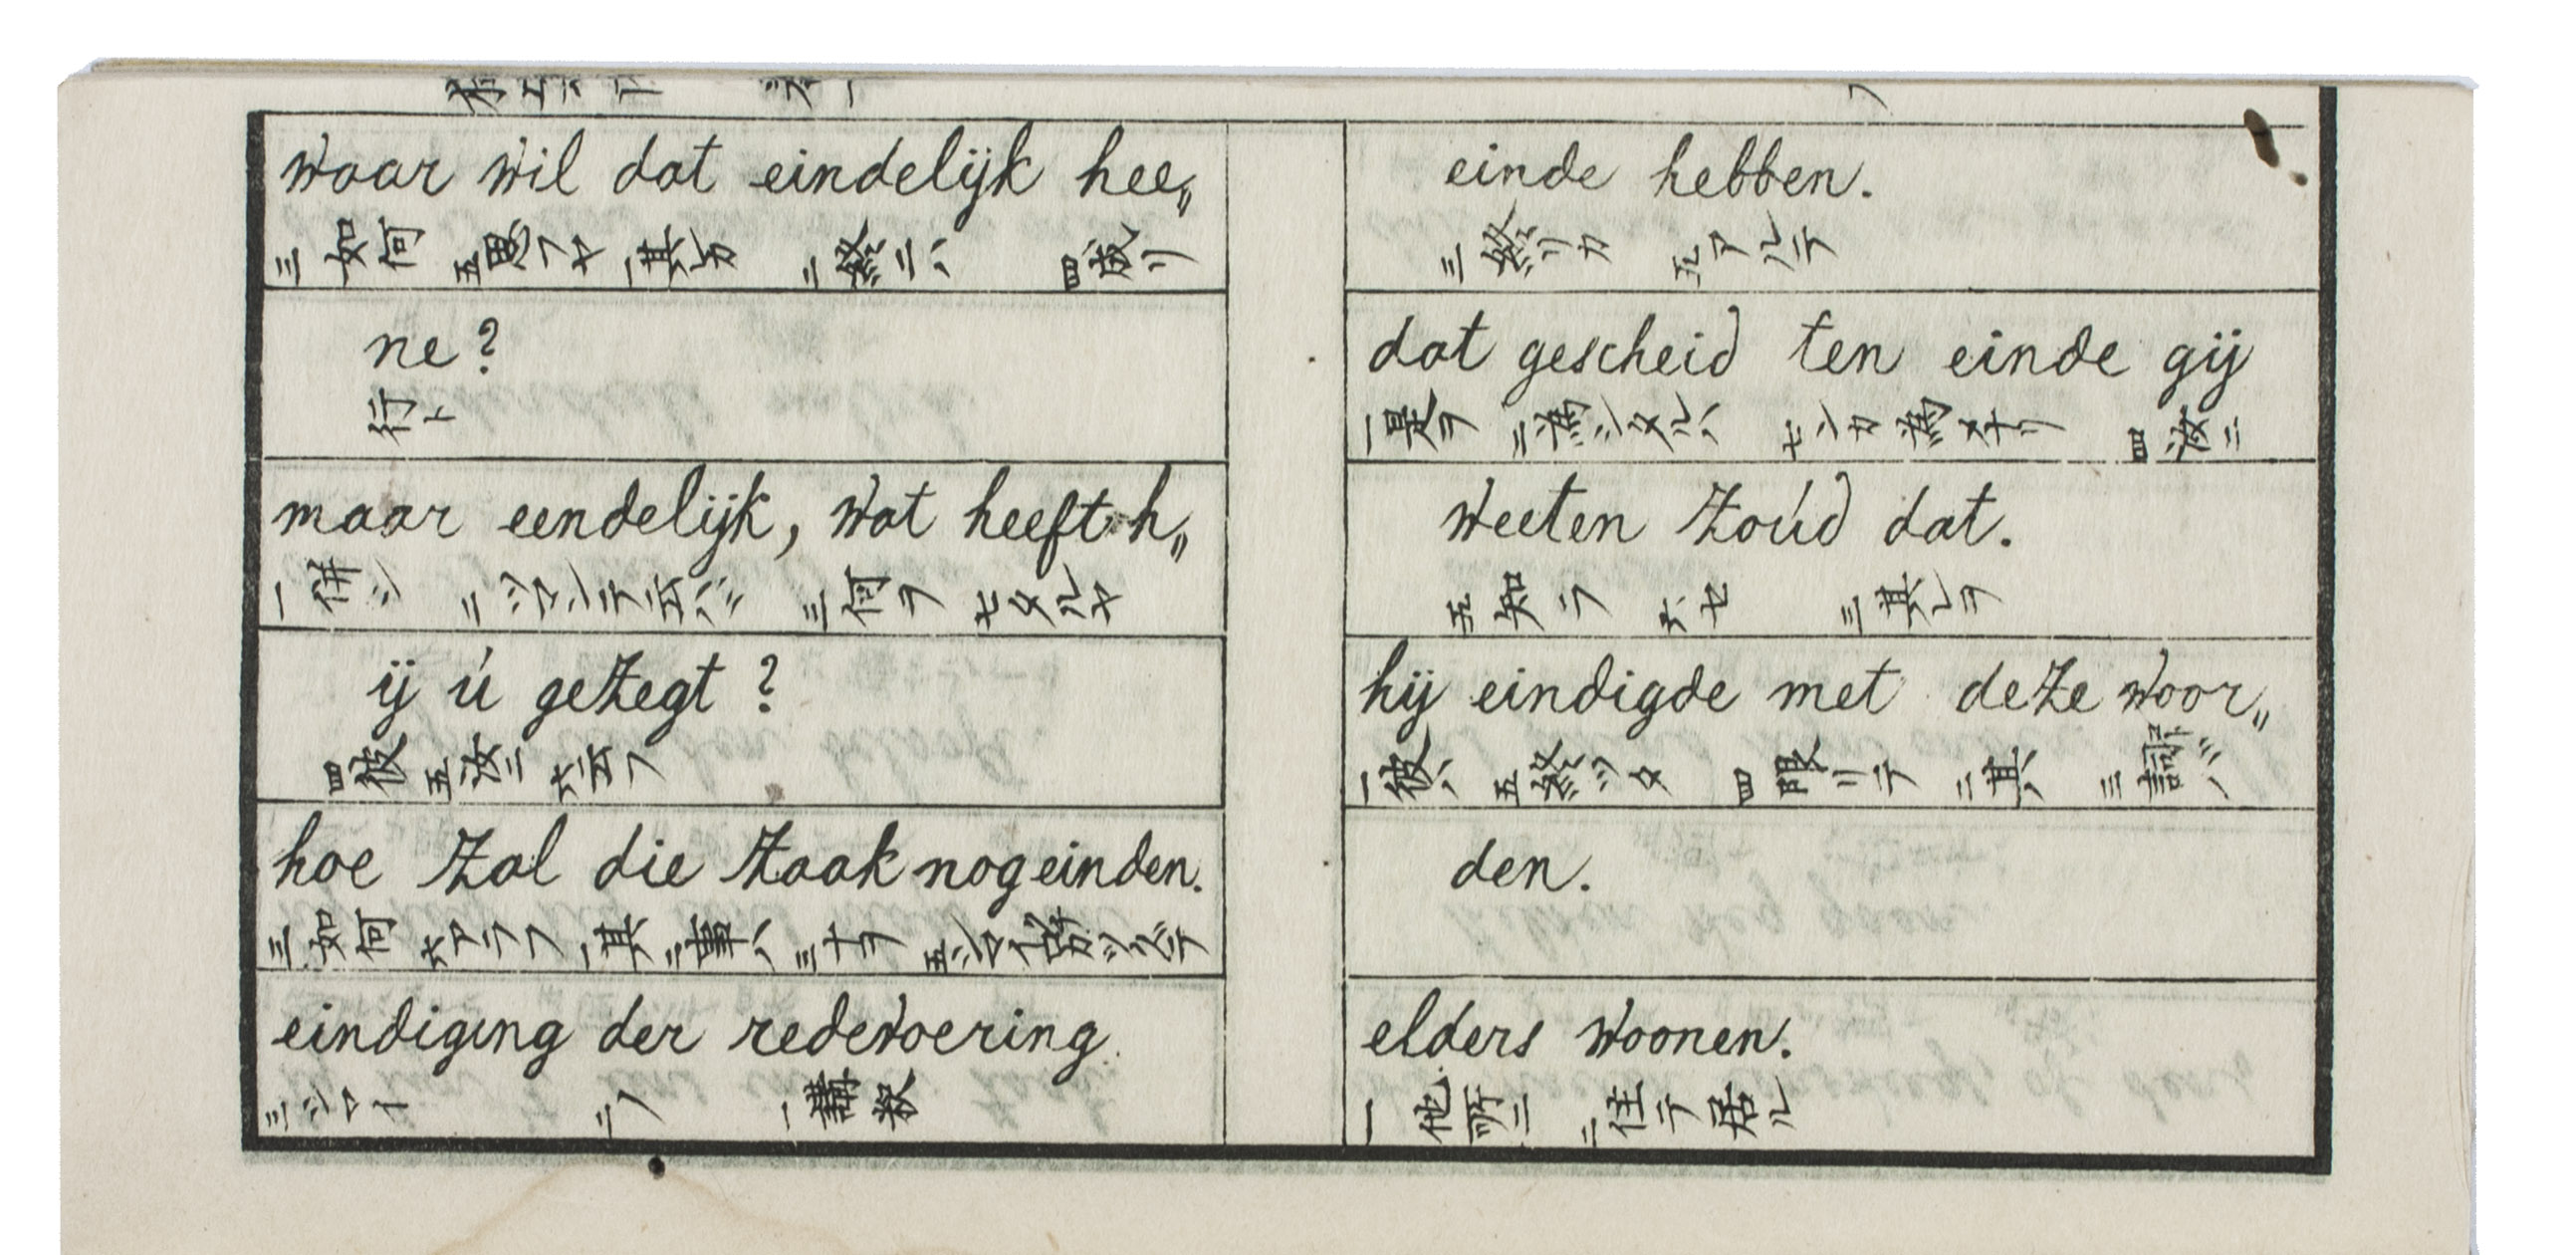 waar wil dat eindelijk hee„
三如何 五思フヤ 一其レカ 二終ニハ 四成リ
ne?
行ト
maar eendelijk, wat heeft h„
一併シ 二ツマンテ云ハバ 三何ヲ 七タルヤ
ij ú gezegt?
四彼 五汝ニ 六云フ
hoe zal die zaak nog einden.
三如何 六アラフ 一其 二事ハ 五シマイ
eindiging der redevoering.
三シマイ 二ノ 一講釈
einde hebben.
三終リカ 五アルテ
dat gescheid ten einde gij
一是ヲ 二為シタルハ 七ンカ為メナリ 四汝ニ
weeten zoúd dat.
五知ラ 六セ 三其レヲ
hij eindigde met deze woor„
一彼ハ 五終ツタ 四限リテ 二其 三詞バ
den.
elders woonen.
一他所ニ 二住テ居ル